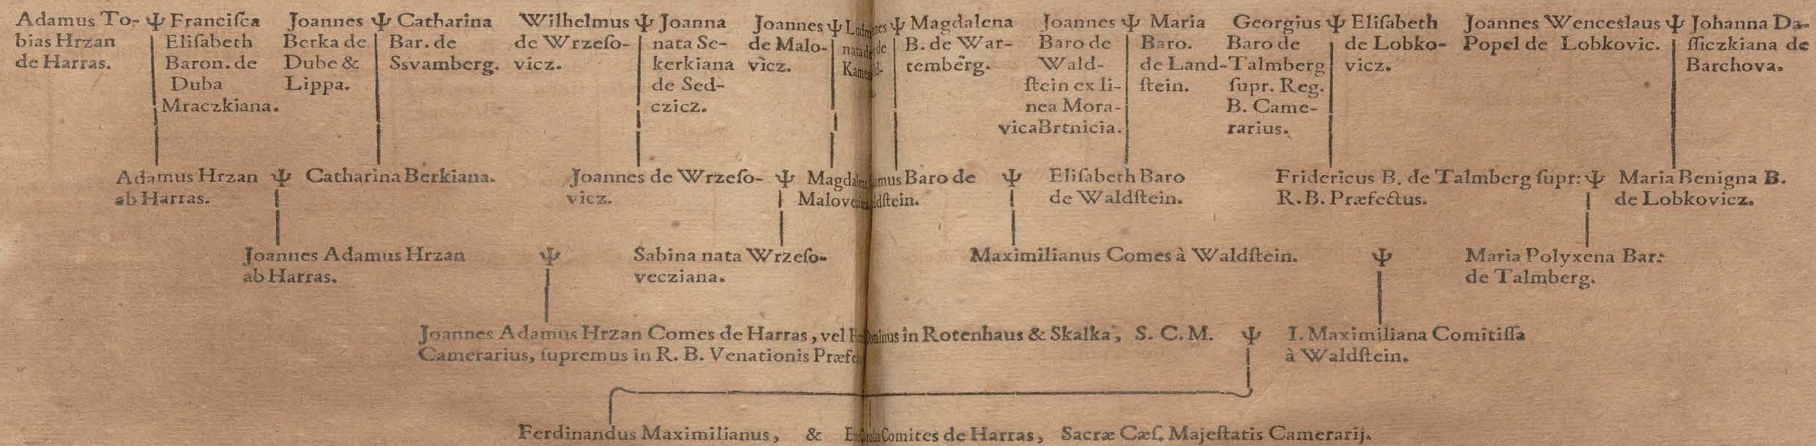 Adamus To-
bias Hrzan
de Harras.
Ψ Franciſca
Eliſabeth
Baron. de
Duba
Mraczkiana.
Joannes
Berka de
Dube &
Lippa.
Ψ Catharina
Bar. de
Ssvamberg.
Wilhelmus
de Wrzeſo-
vicz.
Ψ Joanna
nata Se-
kerkiana
de Sed-
czicz.
Joannes
de Malo-
vicz.
Ψ
nata
Ψ Magdalena
B. de War-
temberg.
Joannes
Baro de
Wald-
ſtein ex li-
nea Mora-
vica Brtnicia.
Ψ Maria
Baro.
de Land-
ſtein.
Georgius
Baro de
Talmberg
ſupr. Reg.
B. Came-
rarius.
Ψ Eliſabeth
de Lobko-
vicz.
Joannes Wenceslaus
Popel de Lobkovic.
Ψ Johanna Da-
ſſiczkiana de
Barchova.
Adamus Hrzan
ab Harras.
Ψ Catharina Berkiana.
Joannes de Wrzeſo-
vicz.
Ψ
Baro de
Ψ Eliſabeth Baro
de Waldſtein.
Fridericus B. de Talmberg ſupr:
R. B. Præfectus.
Ψ Maria Benigna B.
de Lobkovicz.
Joannes Adamus Hrzan
ab Harras.
Ψ Sabina nata Wrzeſo-
vecziana.
Maximilianus Comes à Waldſtein.
Ψ Maria Polyxena Bar:
de Talmberg.
Joannes Adamus Hrzan Comes de Harras, vel in Rotenhaus & Skalka, S. C. M.
Camerarius, ſupremus in R. B. Venationis
Ψ I. Maximiliana Comitiſſa
à Waldſtein.
Ferdinandus Maximilianus, & Comites de Harras, Sacræ Cæſ. Majeſtatis Camerarij.